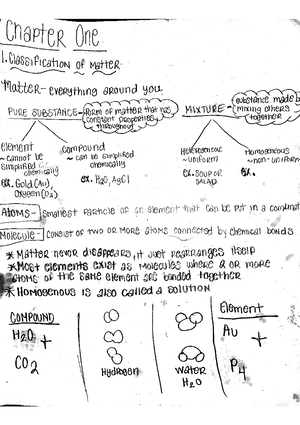 Chapter One
1. Classification of Matter
Matter- everything around you
PURE SUBSTANCE- form of matter that has constant properties throughout
MIXTURE- substance made by mixing others together
element
~ cannot be simplified chemically
ex. Gold (Au), Oxygen (O2)
Compound
~ can be simplified chemically
ex. H2O, AgCl
Heterogenous
~ uniform
ex. SOUP OR SALAD
Homogenous
~ non-uniform
ex.
Atoms- Smallest particle of an element that can be put in a
Molecule- Consist of two or more atoms connected by chemical bonds
* Matter never disappears, it just rearranges itself
* Most elements exist as molecules where 2 or more atoms of the same element are bonded together
* Homogenous is also called a solution
COMPOUND
H2O +
CO2
Hydrogen
Water
H2O
Element
Au +
P4